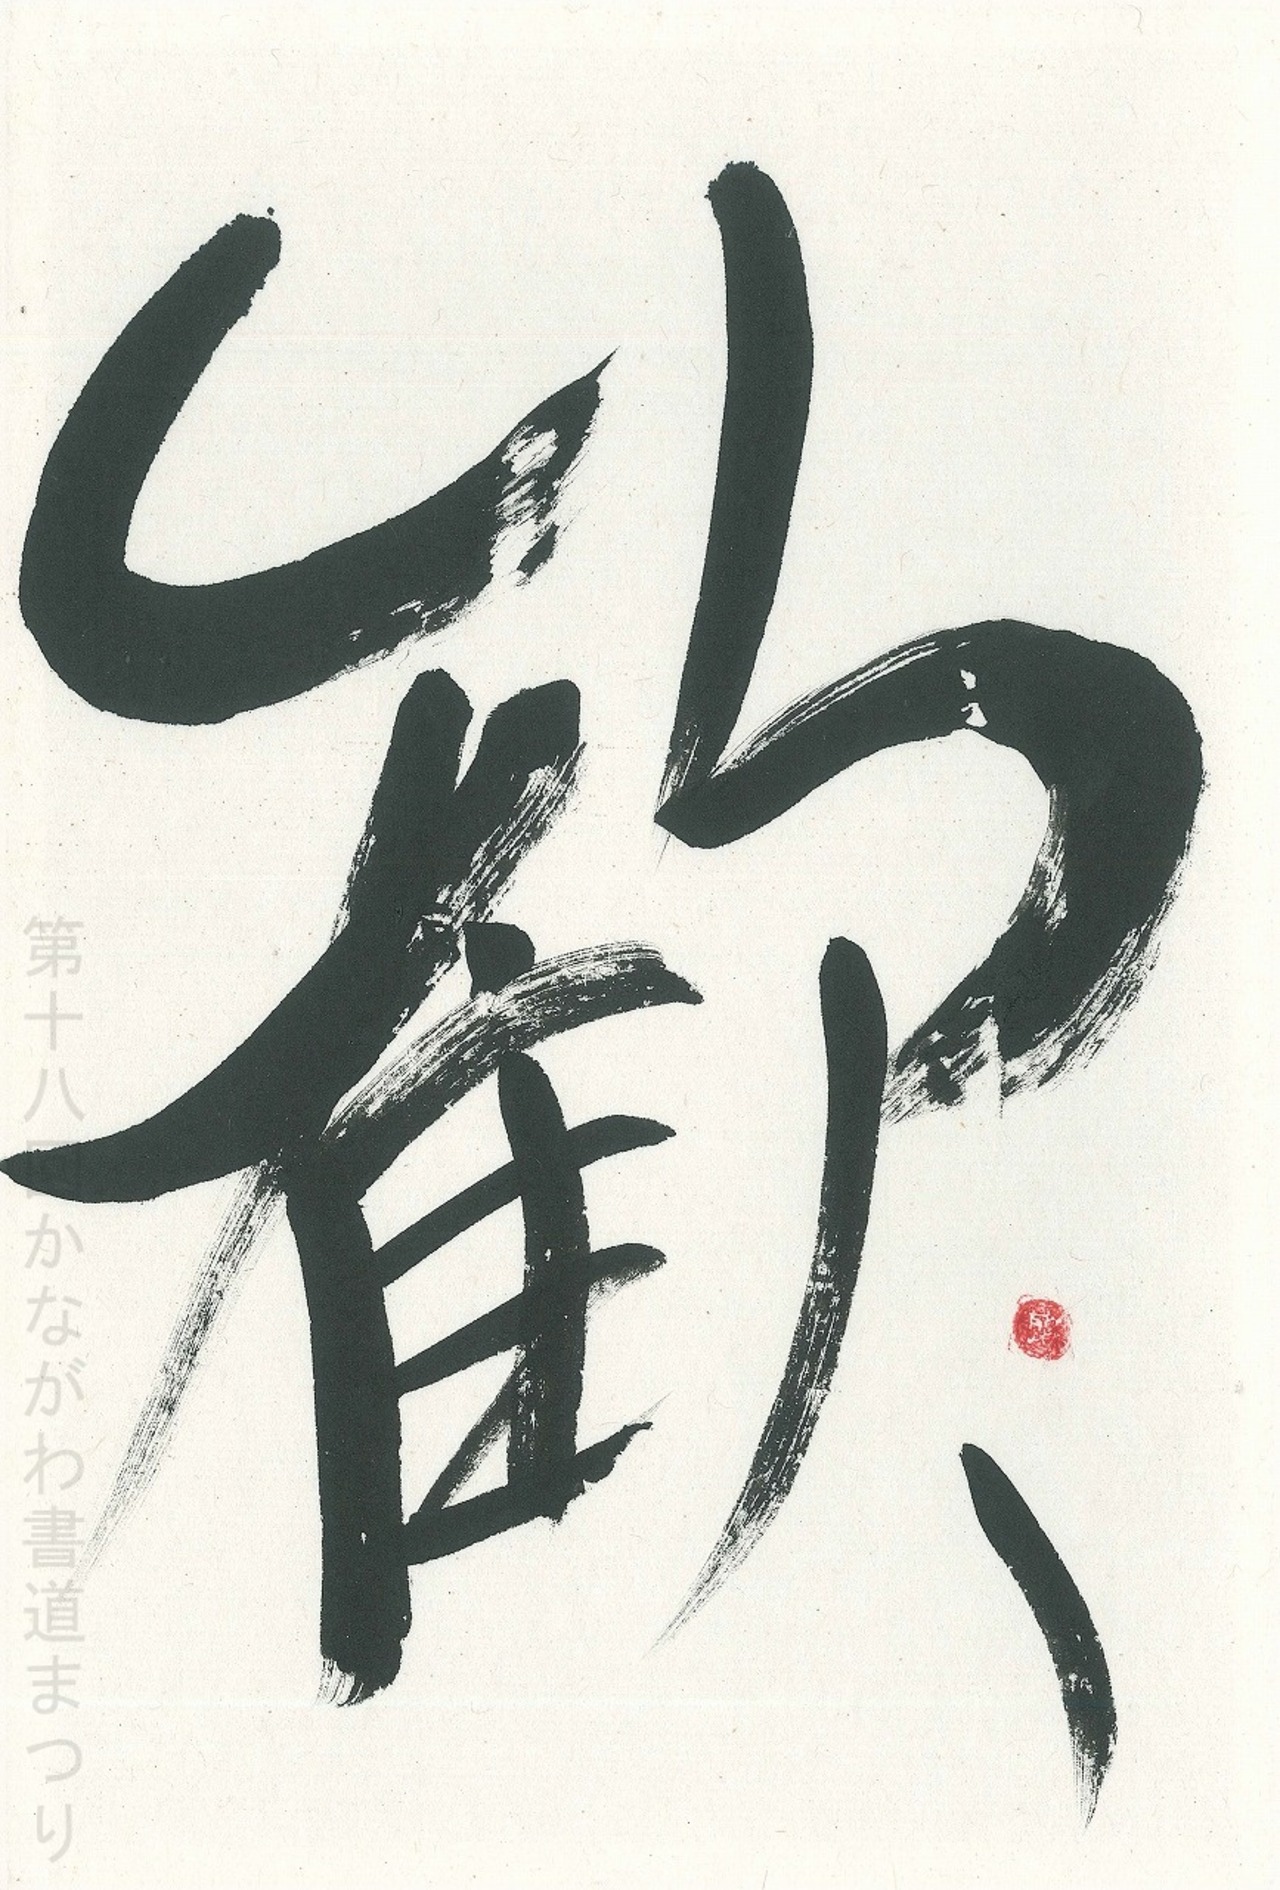 歓
第十八回かながわ書道まつり